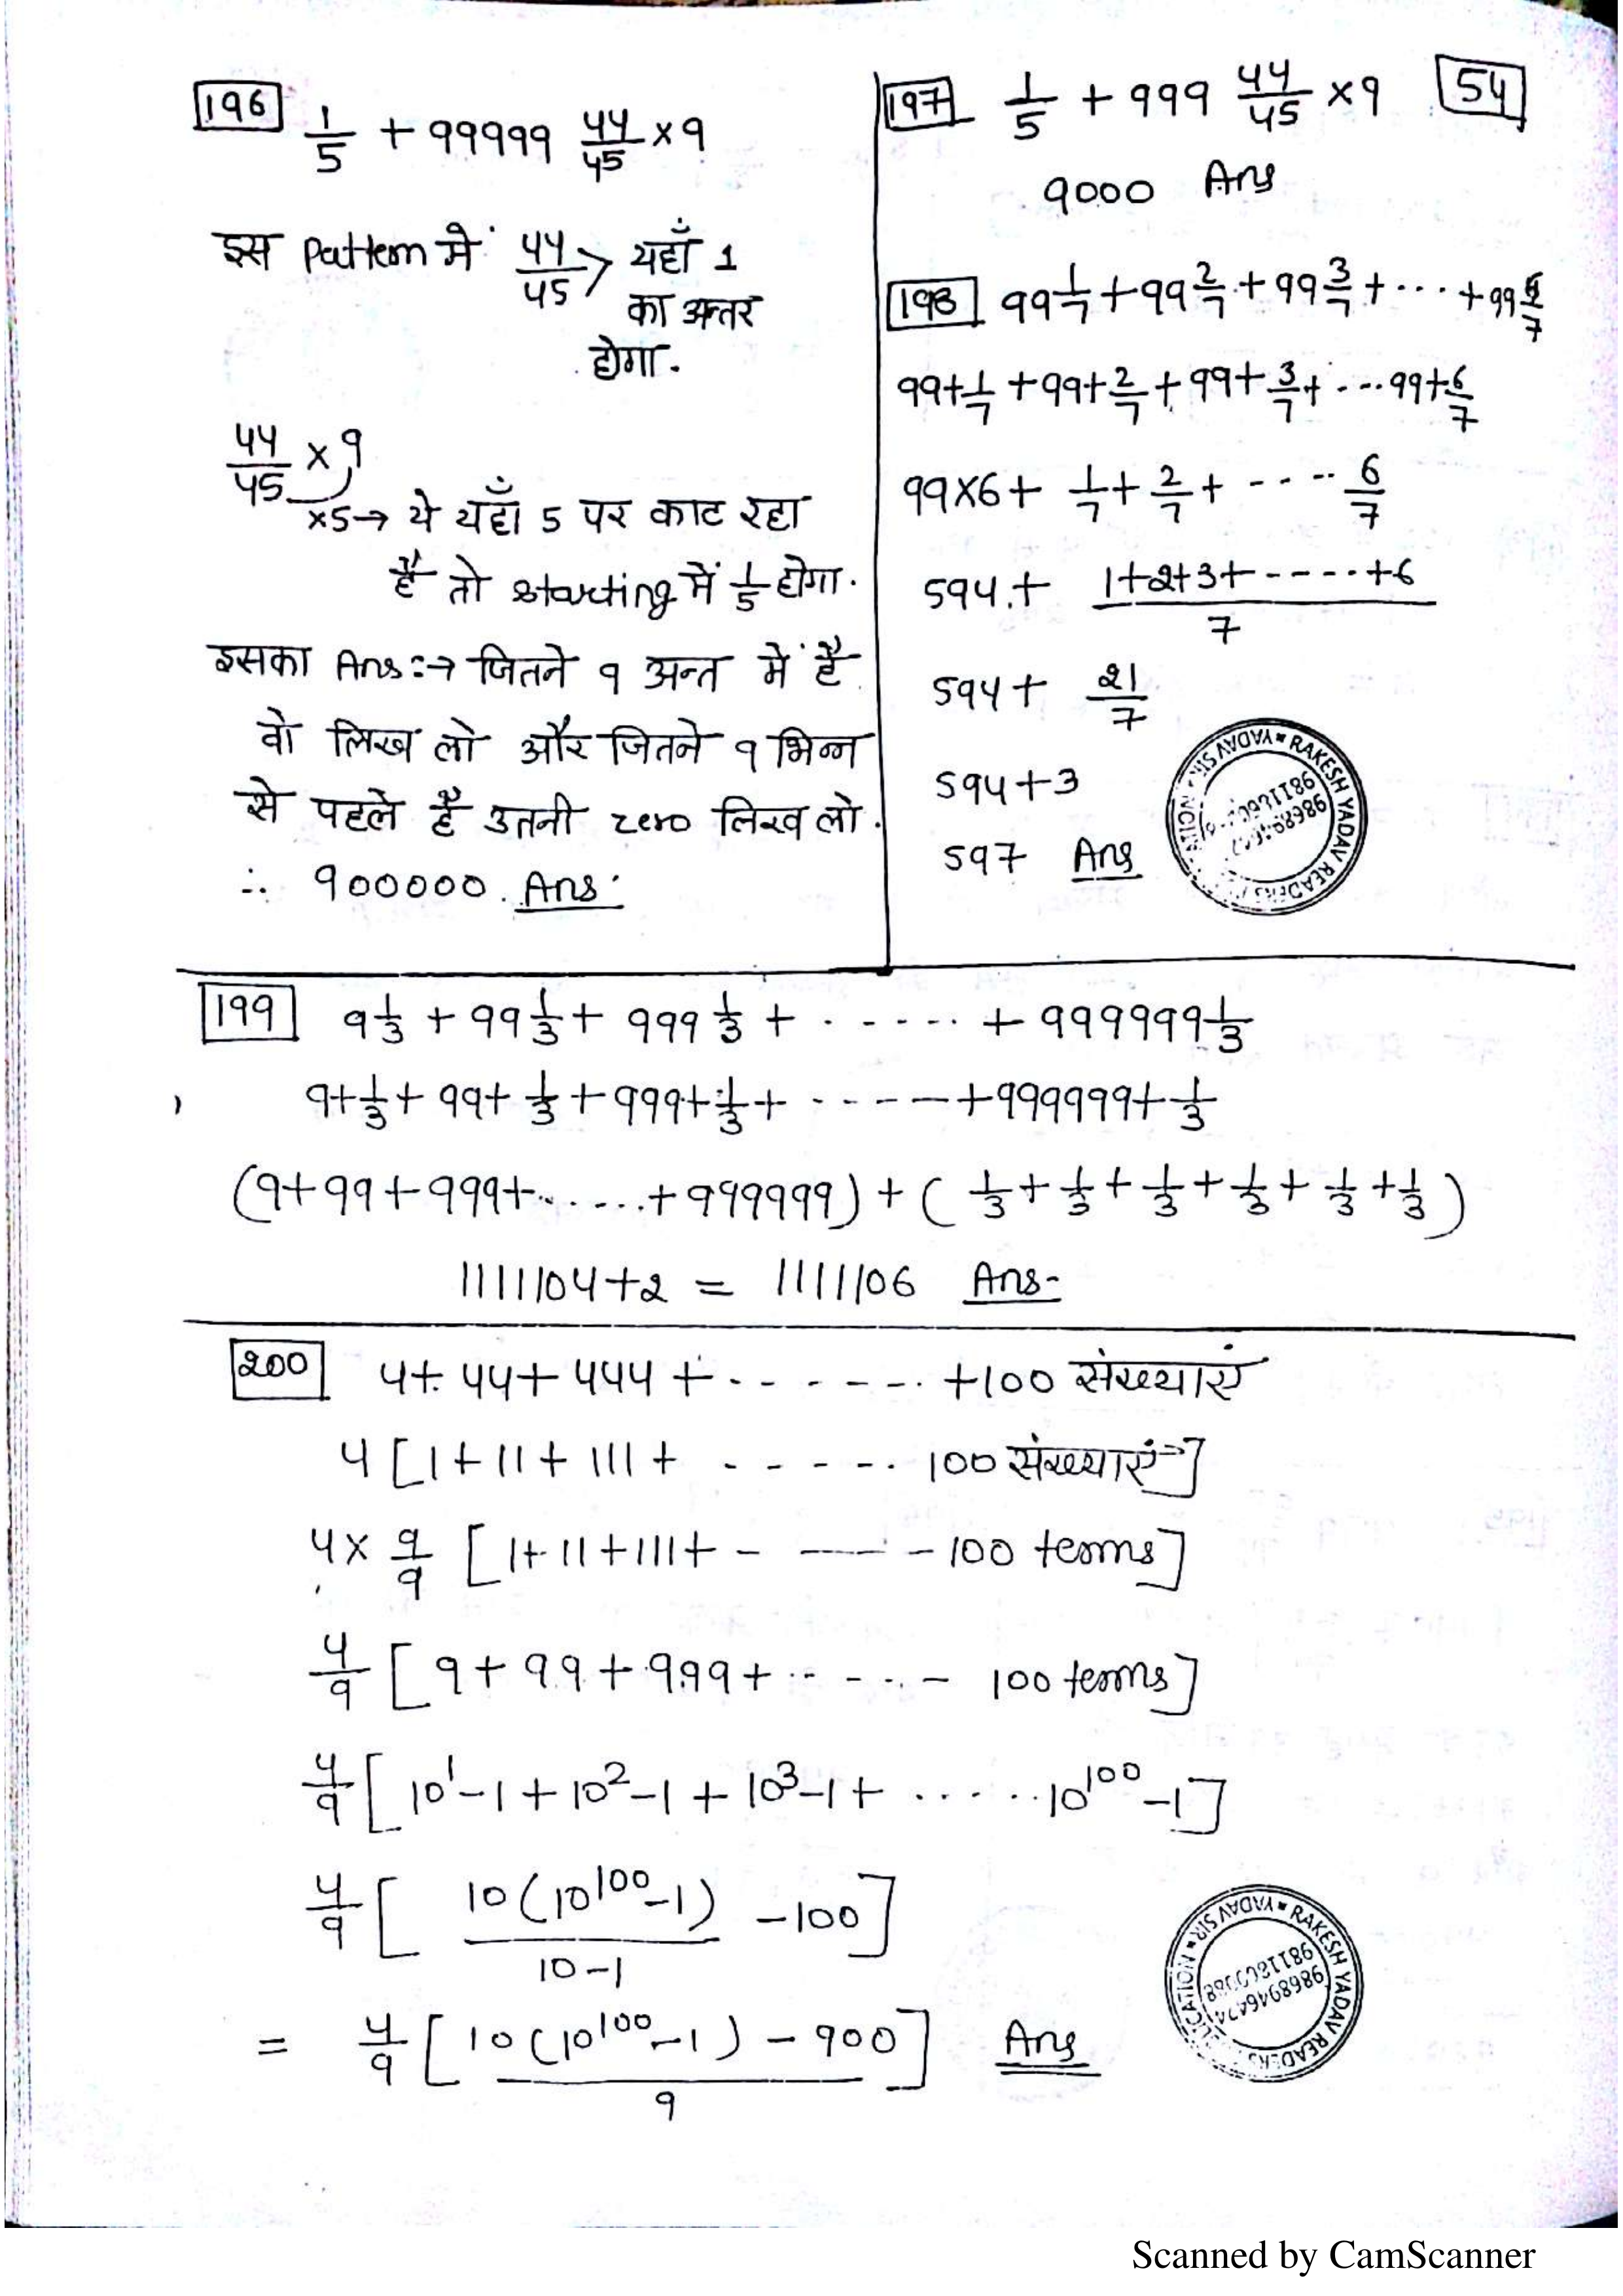 196 1/5 + 99999 44/45 × 9
इस Pattern में 44/45 > यहाँ 1
का अन्तर
होगा.
44/45 × 9
×5 → ये यहाँ 5 पर काट रहा
है तो starting में 1/5 होगा.
इसका Ans :→ जितने 9 अन्त में है
वो लिख लो और जितने 9 भिन्न
से पहले है उतनी zero लिख लो.
∴ 900000. Ans.
197 1/5 + 999 44/45 × 9
54
9000 Ans
198 99 1/7 + 99 2/7 + 99 3/7 + ... + 99 6/7
99+1/7 + 99+2/7 + 99+3/7 + ... 99+6/7
99×6 + 1/7 + 2/7 + ---- 6/7
594 + (1+2+3+-----+6)/7
594 + 21/7
594+3
597 Ans
RAKESH YADAV READERS
YADAV SIR
199 9 1/3 + 99 1/3 + 999 1/3 + ...... + 999999 1/3
9+1/3 + 99+1/3 + 999+1/3 + ----- +999999+1/3
(9+99+999+......+999999) + (1/3+1/3+1/3+1/3+1/3+1/3)
1111104+2 = 1111106 Ans-
200 4+44+444+------- +100 संख्याएं
4[1+11+111+ ------ 100 संख्याएं]
4×9/9 [1+11+111+ - --- -100 terms]
4/9 [9+99+999+ ------ 100 terms]
4/9 [10¹-1+10²-1+10³-1+ ......10¹⁰⁰-1]
4/9 [10(10¹⁰⁰-1)/(10-1) -100]
= 4/9 [(10(10¹⁰⁰-1)-900)/9] Ans
RAKESH YADAV READERS
YADAV SIR
Scanned by CamScanner